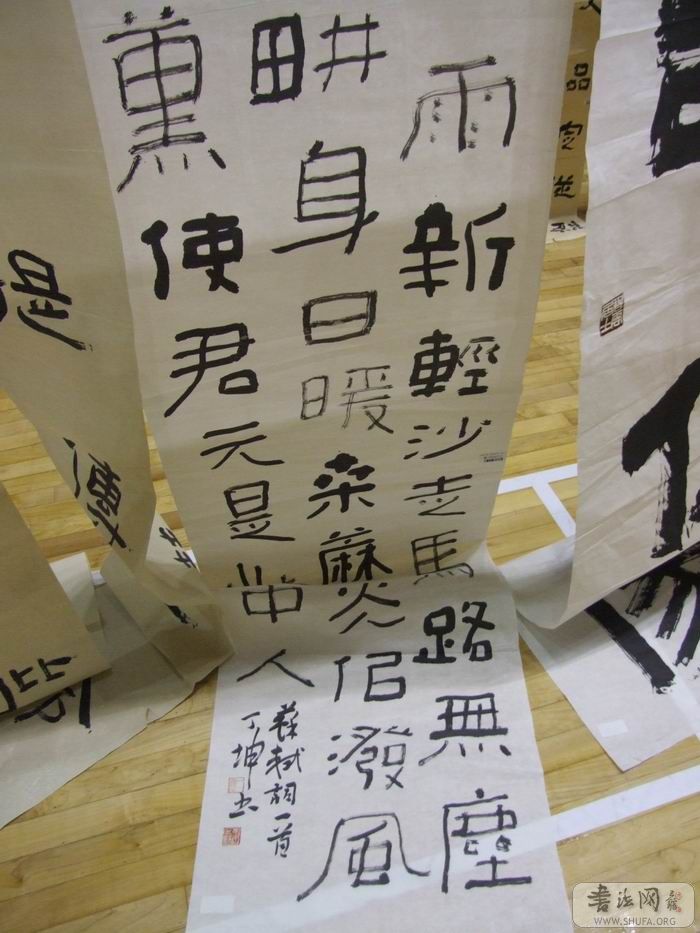 雨新輕沙走馬路無塵
畊身日暖桑麻光佀潑風
薰使君元是此中人
蘇軾詞一首
丁坤书
是
品
书法网
WWW.SHUFA.ORG